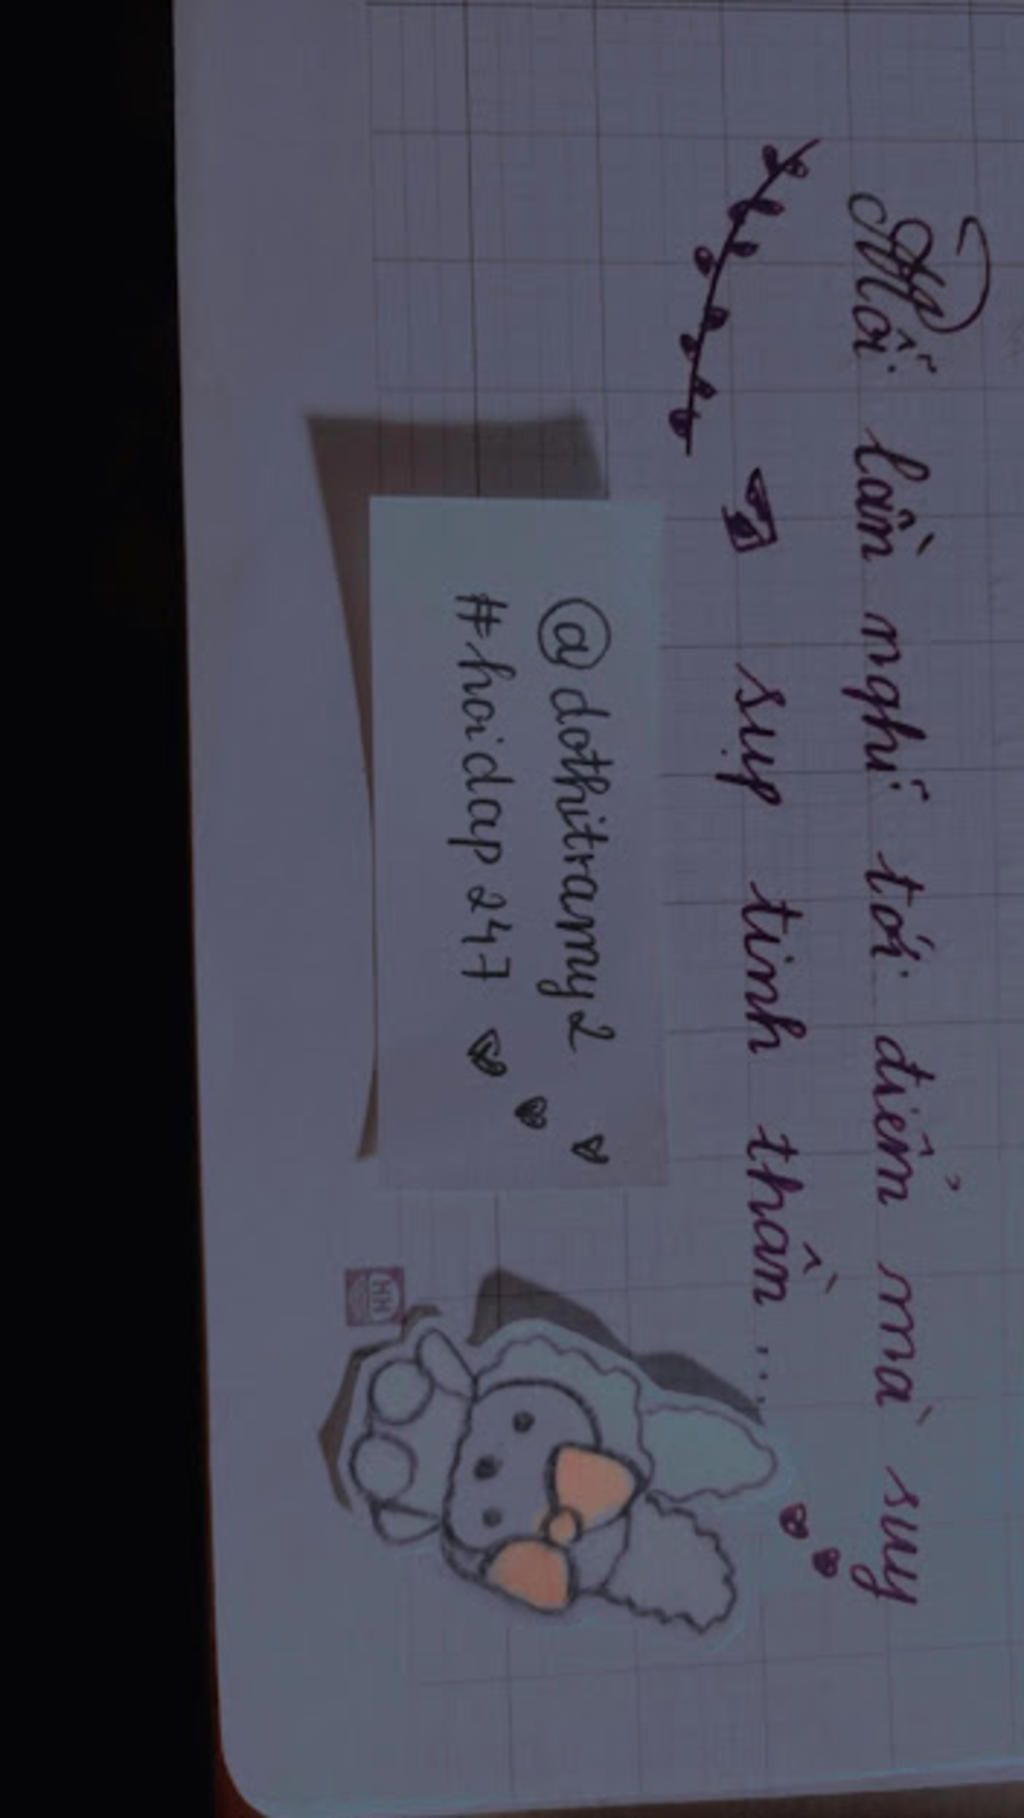 Mỗi lần nghĩ tới điểm mà suy
sụp tinh thần...
@dothitramy2
#hoidap247
HH